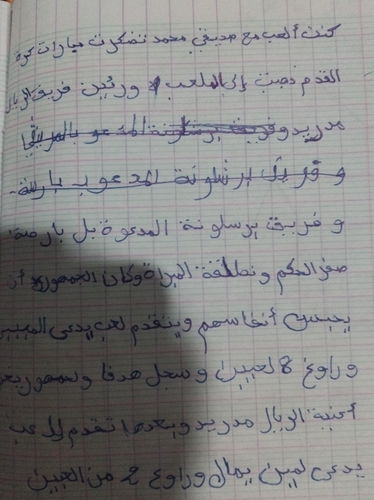 كنت ألعب مع صديقي محمد تضكرت مبارات كرة
القدم ذهبت إلى الملعب ورئين فريق الريال
مدريد وفريق برشلونة المدعو بالمريقي
و فريق برشلونة المدعو ب بارصة
و فريق برسلونة المدعوة بل بارصة
صفر الحكم ونطلقة المبراة وكان الجمهور أن
يحبس أنفاسهم ويتقدم لعب يدعى المبيبي
و راوغ 8 لعبين وسجل هدفا وجمهور يغ
أغنية الريال مدريد وبعدها تقدم إلى لعب
يدعى لمين يمال وراوغ 2 من العبين